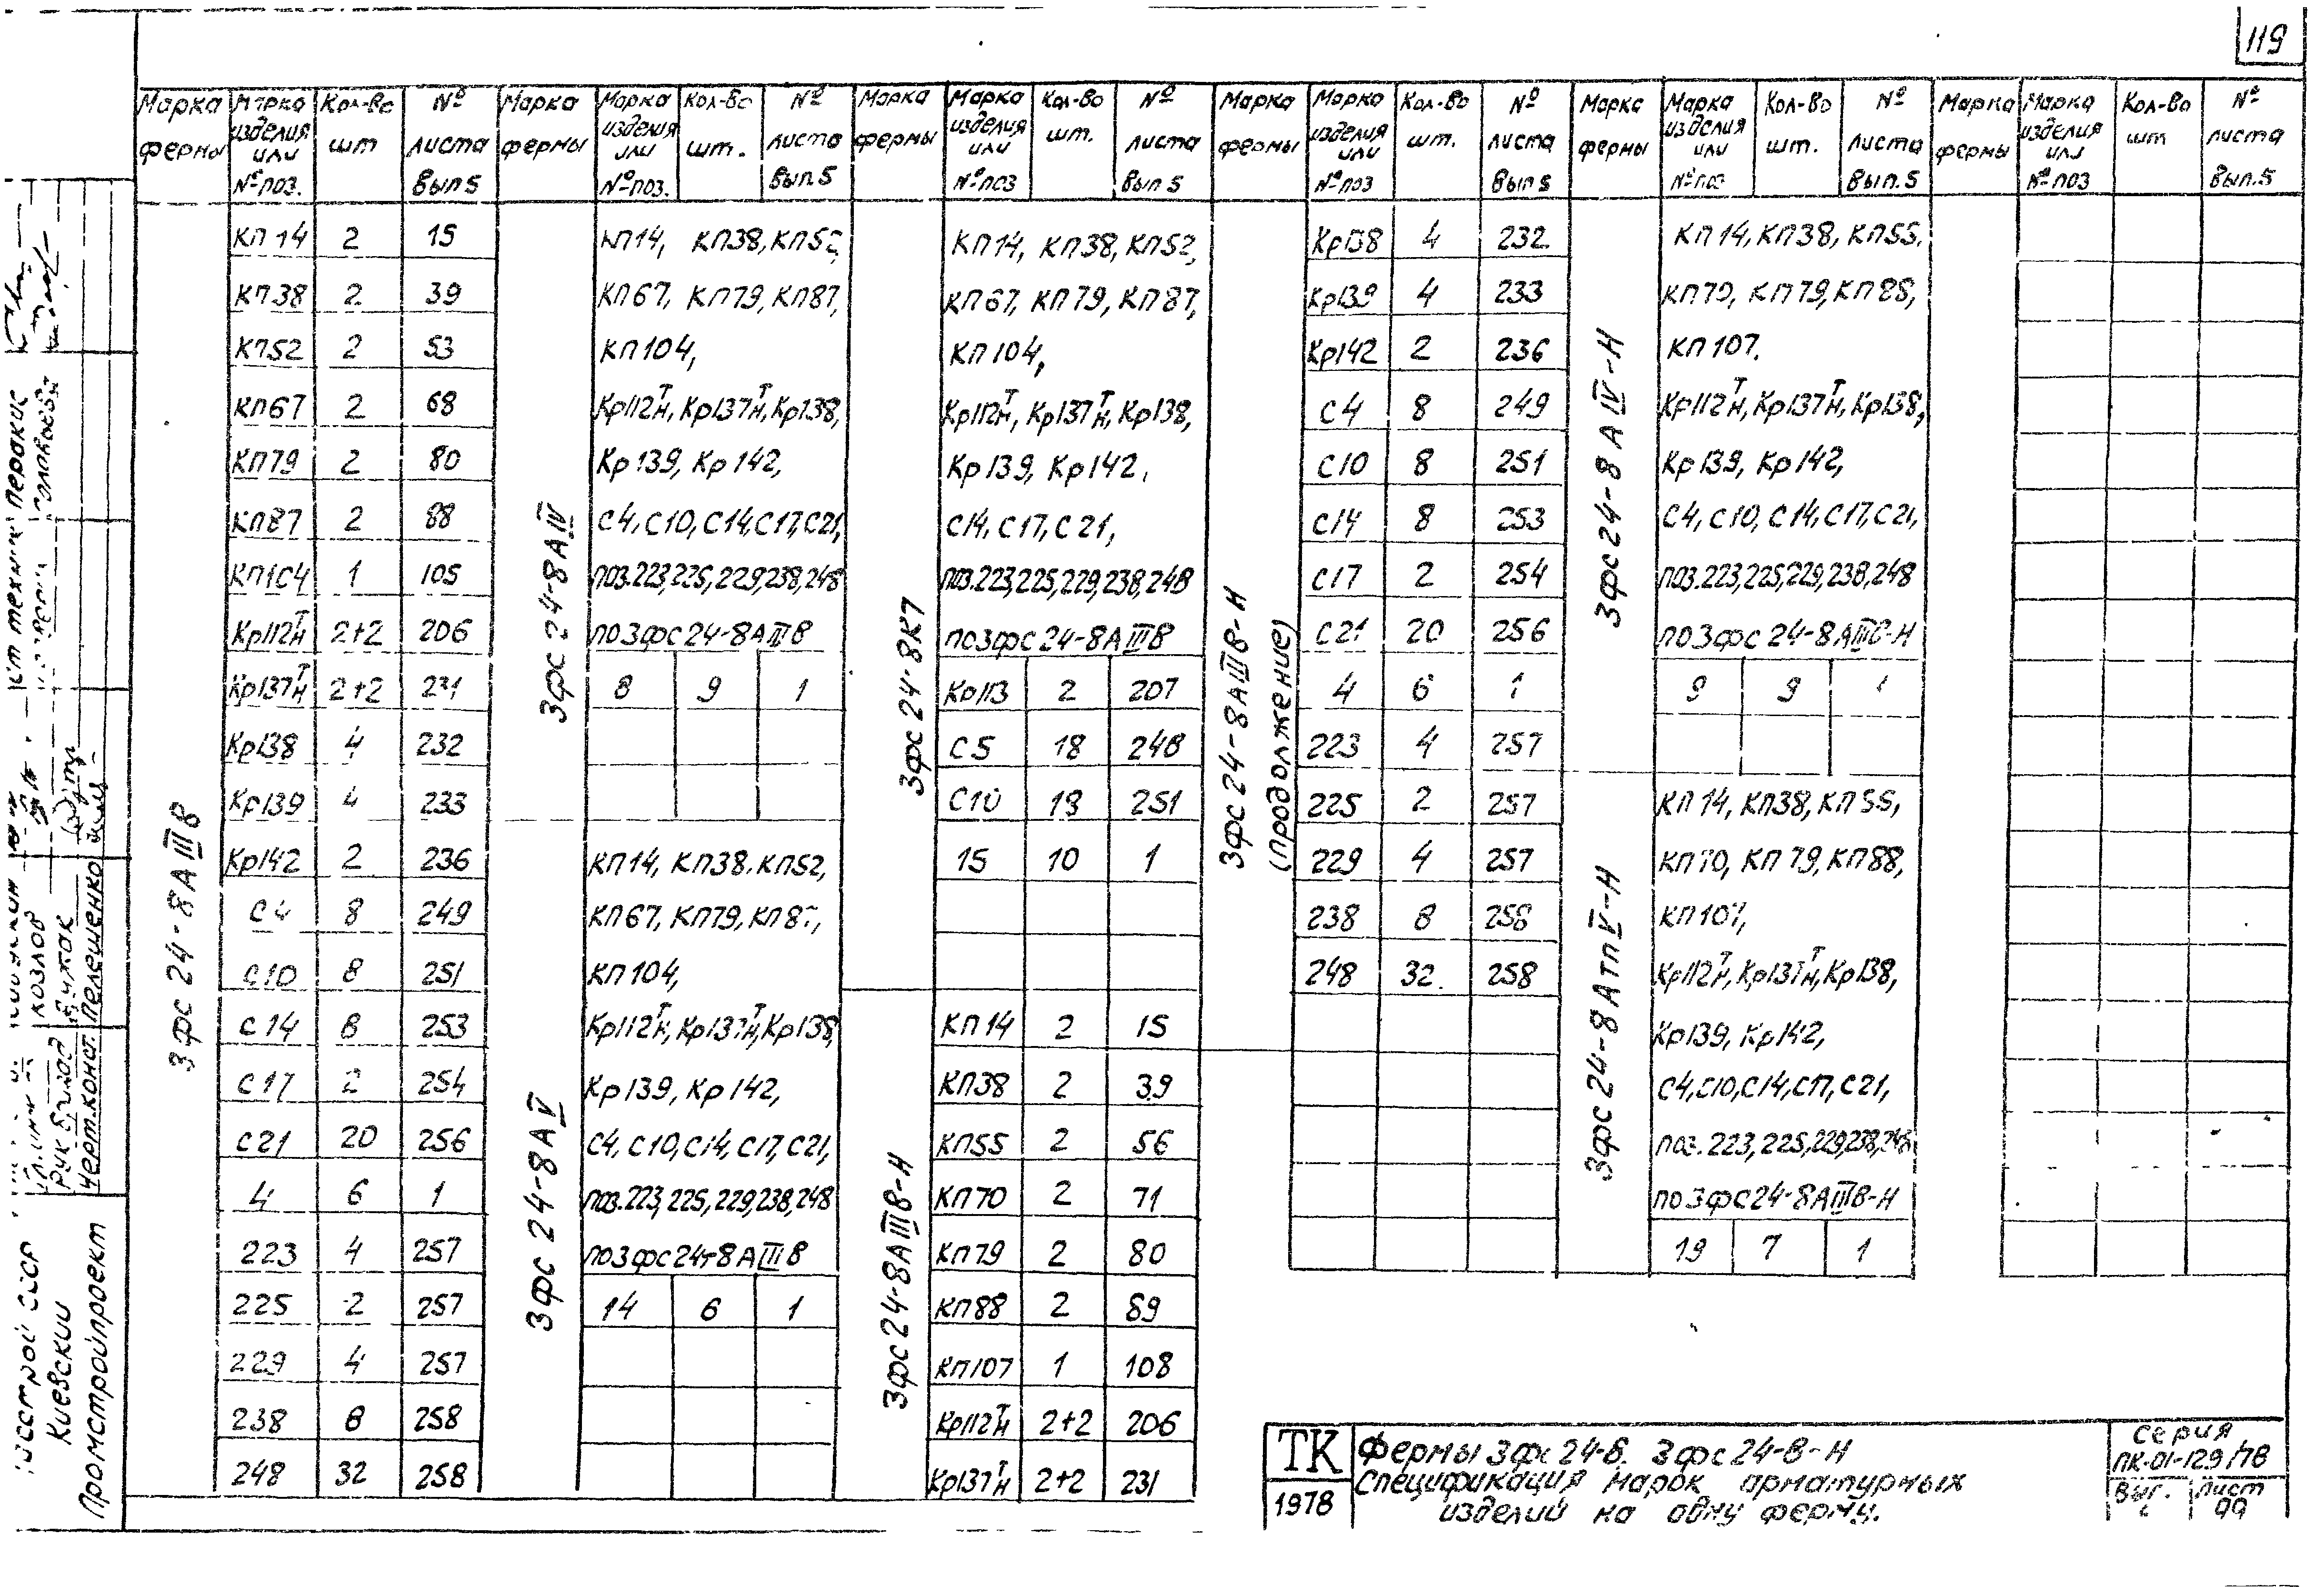 119
Марка фермы | Марка изделия или № поз. | Кол-во шт | № листа вып 5
3фс 24-8АIIIв
КП 14 2 15
КП38 2 39
КП52 2 53
КП67 2 68
КП79 2 80
КП87 2 88
КП104 1 105
Кр112Т/Н 2+2 206
Кр137Т/Н 2+2 231
Кр138 4 232
Кр139 4 233
Кр142 2 236
С4 8 249
С10 8 251
С14 8 253
С17 2 254
С21 20 256
4 6 1
223 4 257
225 2 257
229 4 257
238 8 258
248 32 258
Марка фермы | Марка изделия или № поз. | Кол-во шт. | № листа вып 5
3фс 24-8АIV
КП14, КП38, КП52,
КП67, КП79, КП87,
КП104,
Кр112Т/Н, Кр137Т/Н, Кр138,
Кр139, Кр142,
С4, С10, С14, С17, С21,
поз. 223, 225, 229, 238, 248
по 3фс 24-8АIIIв
8 9 1
3фс 24-8АV
КП14, КП38. КП52,
КП67, КП79, КП87,
КП104,
Кр112Т/Н, Кр137Т/Н, Кр138,
Кр139, Кр142,
С4, С10, С14, С17, С21,
поз. 223, 225, 229, 238, 248
по 3фс 24-8АIIIв
14 6 1
Марка фермы | Марка изделия или № поз | Кол-во шт. | № листа вып 5
3фс 24-8К7
КП14, КП38, КП52,
КП67, КП79, КП87,
КП104,
Кр112Т/Н, Кр137Т/Н, Кр138,
Кр139, Кр142,
С14, С17, С21,
поз. 223, 225, 229, 238, 248
по 3фс 24-8АIIIв
Кр113 2 207
С5 18 248
С10 18 251
15 10 1
3фс 24-8АIIIв-Н
КП14 2 15
КП38 2 39
КП55 2 56
КП70 2 71
КП79 2 80
КП88 2 89
КП107 1 108
Кр112Т/Н 2+2 206
Кр137Т/Н 2+2 231
Марка фермы | Марка изделия или № поз | Кол-во шт. | № листа вып 5
3фс 24-8АIIIв-Н
(продолжение)
Кр138 4 232
Кр139 4 233
Кр142 2 236
С4 8 249
С10 8 251
С14 8 253
С17 2 254
С21 20 256
4 6 1
223 4 257
225 2 257
229 4 257
238 8 258
248 32 258
Марка фермы | Марка изделия или № поз | Кол-во шт. | № листа вып. 5
3фс 24-8АIV-Н
КП14, КП38, КП55,
КП70, КП79, КП88,
КП107,
Кр112Т/Н, Кр137Т/Н, Кр138,
Кр139, Кр142,
С4, С10, С14, С17, С21,
поз. 223, 225, 229, 238, 248
по 3фс 24-8АIIIв-Н
9 9 1
3фс 24-8АтпV-Н
КП14, КП38, КП55,
КП70, КП79, КП88,
КП107,
Кр112Т/Н, Кр137Т/Н, Кр138,
Кр139, Кр142,
С4, С10, С14, С17, С21,
поз. 223, 225, 229, 238, 248
по 3фс 24-8АIIIв-Н
19 7 1
Марка фермы | Марка изделия или № поз | Кол-во шт | № листа вып. 5
Киевский
Промстройпроект
Черт.конст. Пелешенко
Козлов
ТК
1978
Фермы 3фс 24-8. 3фс 24-8-Н
Спецификация марок арматурных
изделий на одну ферму.
Серия
ПК-01-129/78
Лист
99